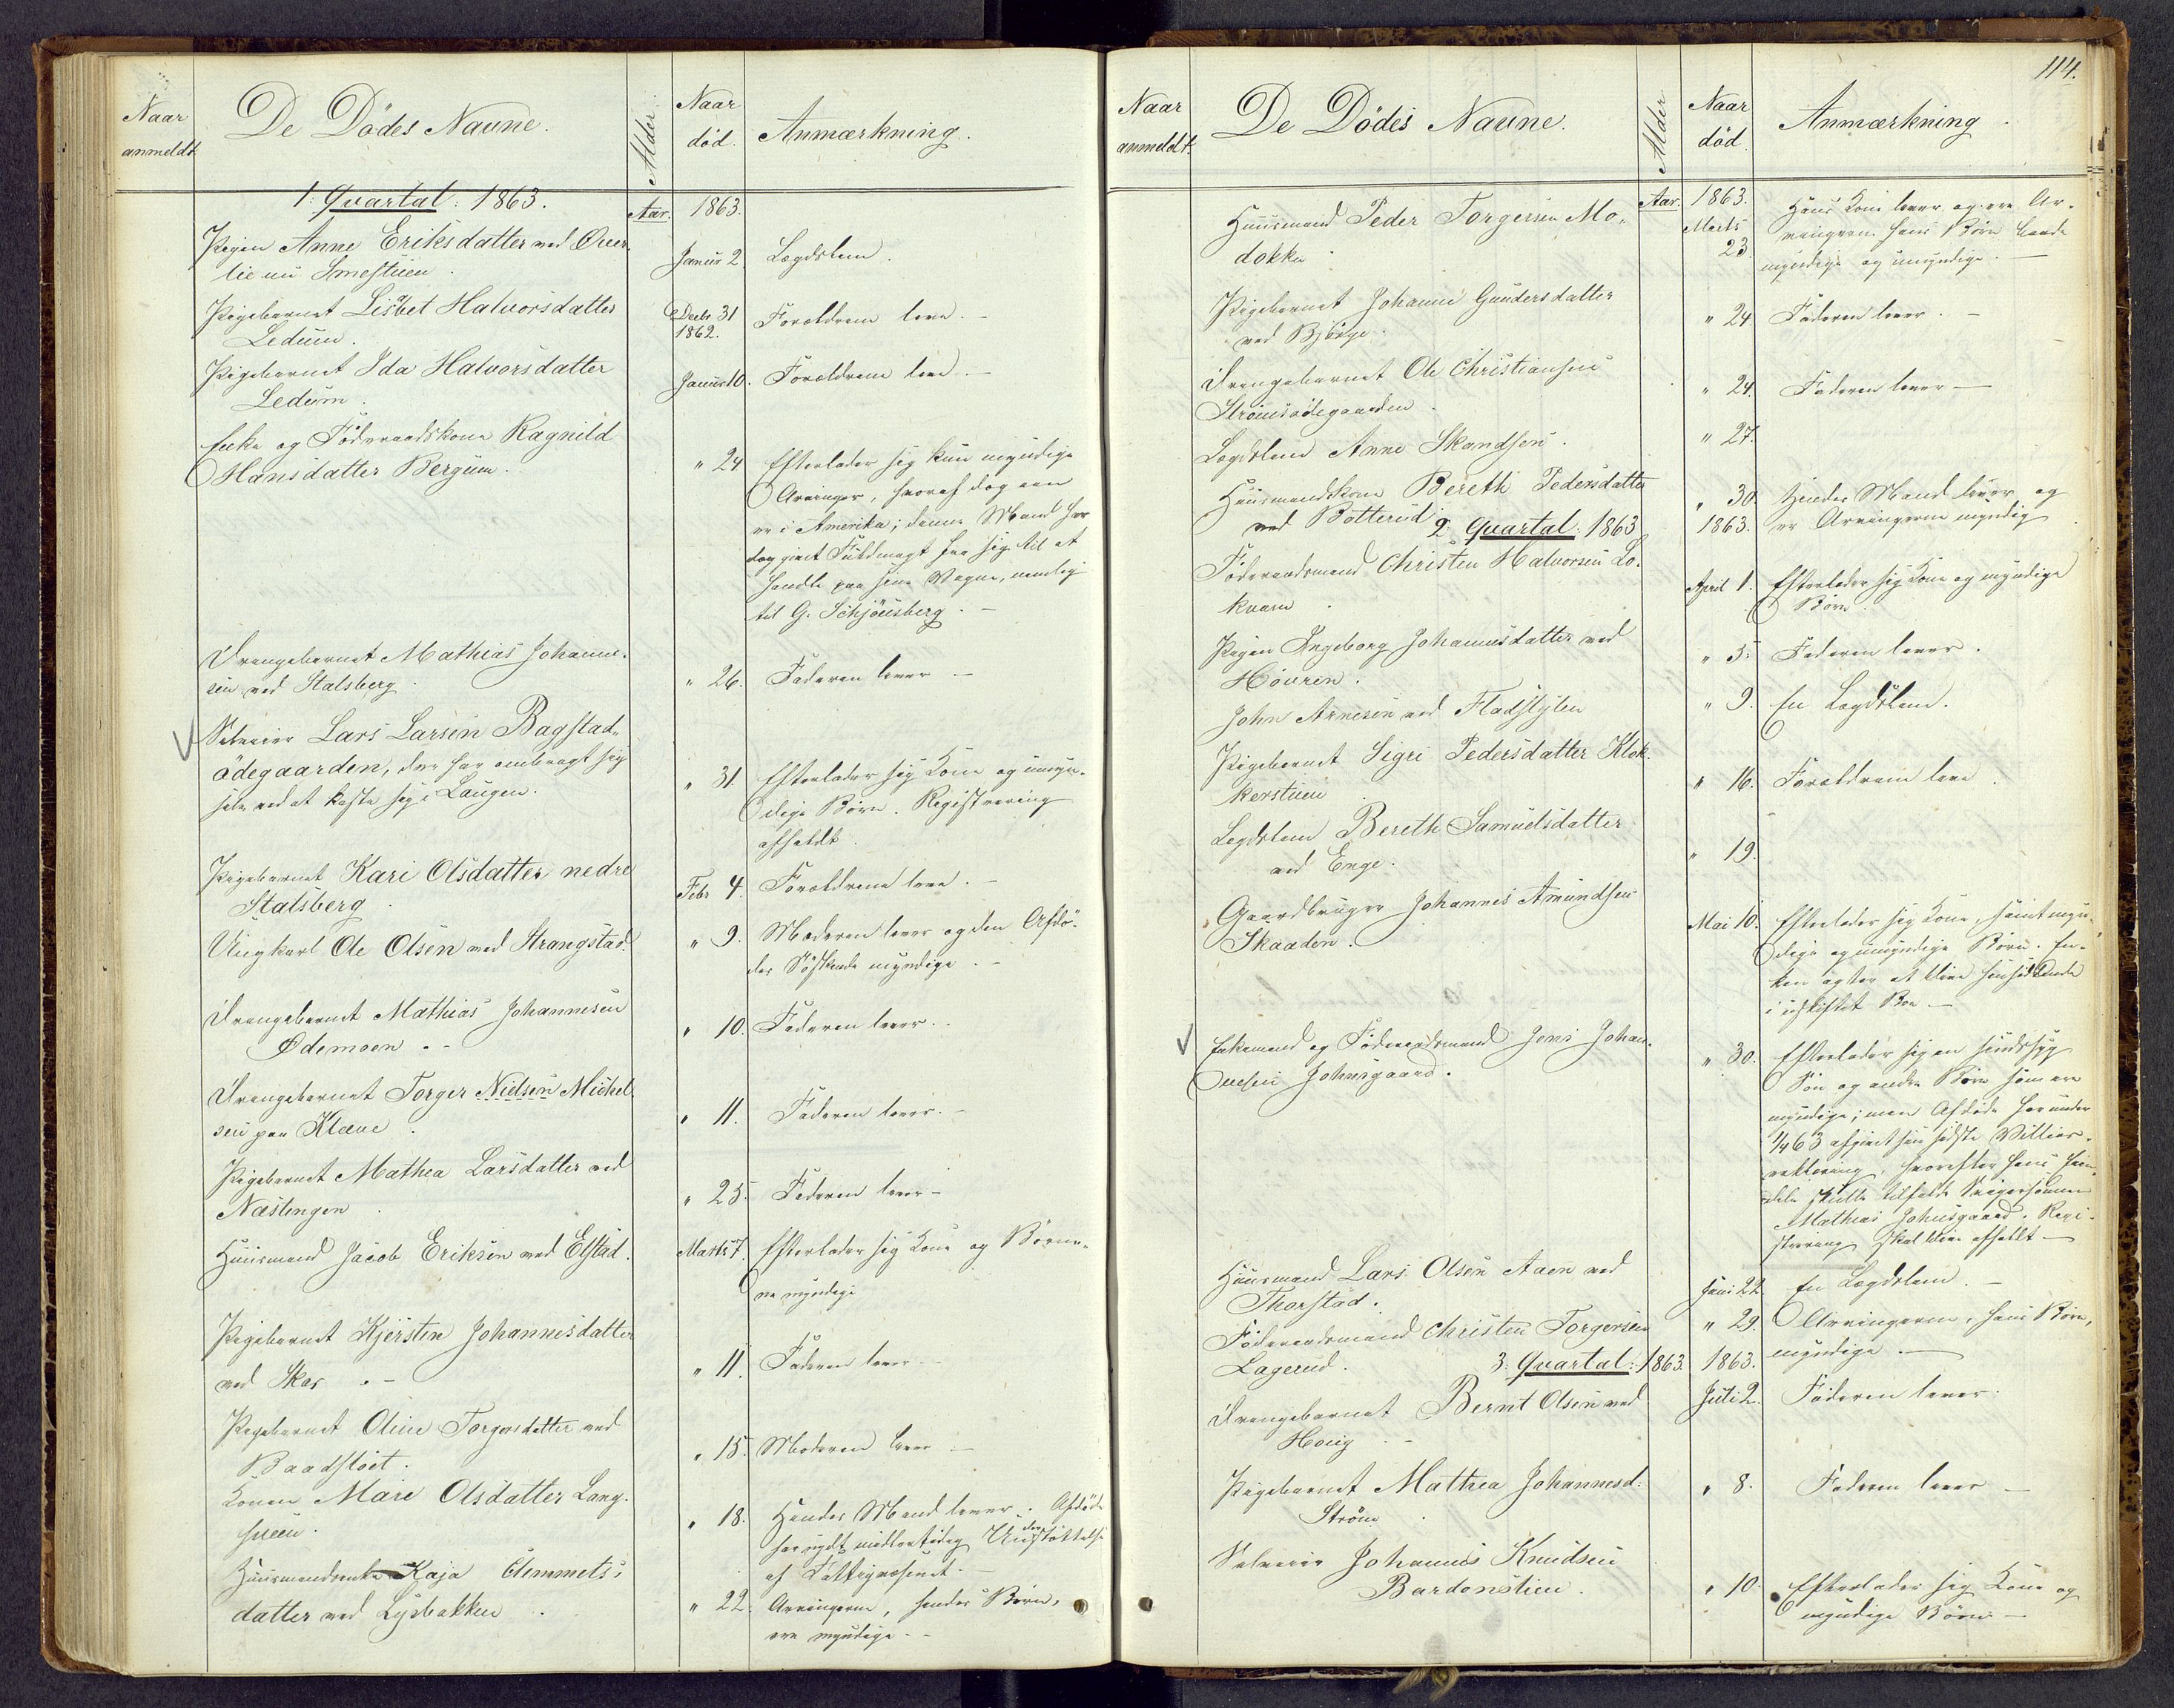 Naar
anmeldt
De Dödes Navne.
Alder
Naar
död.
Anmærkning.
1. Quartal: 1863.
Aar.
1863.
Pigen Anne Eriksdatter ved Över-
lie nu Smestuen.
Januar 2.
Lægdslem.
Pigebarnet Lisbet Halvorsdatter
Ledum.
Decbr 31
1862.
Forældrene leve.
Pigebarnet Ida Halvorsdatter
Ledum.
Januar 10.
Forældrene leve.
Enke og Föderaadskone Ragnild
Hansdatter Bergum.
" 24
Efterlader sig kun myndige
Arvinger, hvoraf dog een
er i Amerika; denne Mand har
dog givet Fuldmagt fra sig til at
handle paa sine Vegne, nemlig
til G. Schjönsberg.
Drengebarnet Mathias Johanne-
sen ved Stalsberg.
" 26.
Faderen lever
Selveier Lars Larsen Bagstad-
ödegaarden, der har ombragt sig
selv ved at kaste sig i Laugen.
" 31
Efterlader sig Kone og umyn-
dige Börn. Registrering
afholdt.
Pigebarnet Kari Olsdatter nedre
Stalsberg
Febr 4.
Forældrene leve.
Ungkarl Ole Olsen ved Strangstad.
" 9.
Moderen lever og den Afdö-
des Södskende myndige.
Drengebarnet Mathias Johannesen
Ödemoen.
" 10.
Faderen lever.
Drengebarnet Torger Nielsen Michel-
sen paa Klæve.
" 11.
Faderen lever.
Pigebarnet Mathea Larsdatter ved
Næslengen
" 25.
Faderen lever
Huusmand Jacob Eriksen ved Elstad.
Marts 7.
Efterlader sig Kone og Börne-
ne myndige
Pigebarnet Kjersten Johannesdatter
ved Skar.
" 11.
Faderen lever
Pigebarnet Oline Torgersdatter ved
Baadstöit.
" 15.
Moderen lever
Konen Mari Olsdatter Lang-
hueen.
" 18.
Hendes Mand lever. Afdöde
har nydt midlertidig Understöttelse
af Fattigvæsenet.
Huusmandsenke Kaja Clemmets-
datter ved Lysbakken
" 22.
Arvingerne, hendes Börn,
ere myndige.
114.
Naar
anmeldt.
De Dödes Navne.
Alder
Naar
död.
Anmærkning.
Huusmand Peder Torgersen Mo-
dokka
Aar.
1863.
Marts
23.
Hans Kone lever og ere Ar-
vingerne hans Börn baade
myndige og umyndige.
Pigebarnet Johanne Gundersdatter
ved Björge.
" 24.
Faderen lever.
Drengebarnet Ole Christiansen
Strömsödegaarden.
" 24.
Faderen lever
Lægdslem Anne Skandsen.
" 27.
Huusmandskone Bereth Pedersdatter
ved Botterud
" 30.
Hendes Mand lever og
er Arvingerne myndig
2. Quartal: 1863
1863.
Föderaadsmand Christen Halvorsen Lo-
kvam
April 1.
Efterlader sig Kone og myndige
Börn.
Pigen Ingeborg Johannesdatter ved
Hövren.
" 5.
Faderen lever.
John Arnesen ved Fladstylen
" 9.
En Lægdslem.
Pigebarnet Sigri Pedersdatter Klok-
kerstuen
" 16.
Forældrene leve
Legdslem Bereth Samuelsdatter
ved Enge.
" 19.
Gaardbruger Johannes Amundsen
Skaaden.
Mai 10.
Efterlader sig Kone, samt myn-
dige og umyndige Börn. En-
ken agter at blive hensiddende
i uskiftet Bo
Enkemand og Föderaadsmand Jens Johan-
nesen Johnsgaard.
" 30.
Efterlader sig en sindssyg
Sön og andre Börn som ere
myndige; men Afdöde har under
1/4 63 afgivet sin sidste Villies-
erklæring, hvorefter hans
skulle tilfalde Svigersönnen
Mathias Johnsgaard. Regi-
strering skal blive afholdt
Huusmand Lars Olsen Aaen ved
Thorstad.
Juni 22.
En Lægdslem.
Föderaadsmand Christen Torgersen
Lagerud.
" 29.
Arvingerne, hans Börn,
myndige
3. Quartal: 1863.
1863.
Drengebarnet Bernt Olsen ved
Houg
Juli 2.
Faderen lever.
Pigebarnet Mathea Johannesd:
Ström.
" 8.
Faderen lever
Selveier Johannes Knudsen
Bardonstuen.
" 10.
Efterlader sig Kone og
myndige Börn